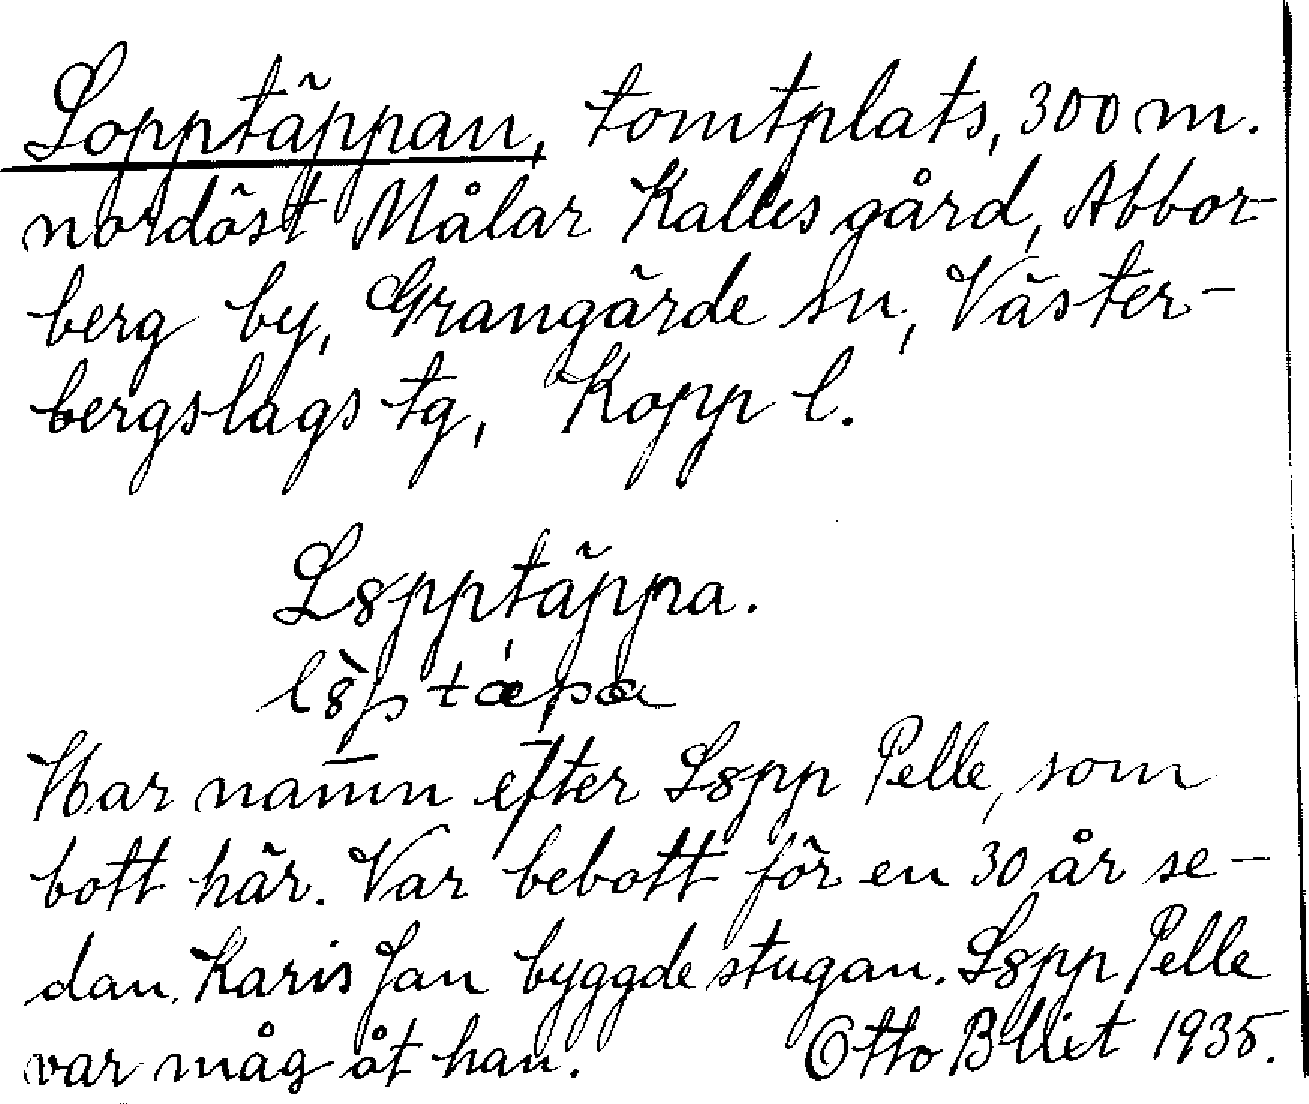 Lopptäppan, tomtplats, 300 m.
nordöst Målar Kalles gård, Abbor-
berg by, Grangärde sn, Väster-
bergslags tg, Kopp l.
L8pptäppa.
l8̀p tæpa
Har namn efter L8pp Pelle, som
bott här. Var bebott för en 30 år se-
dan. Karis Jan byggde stugan. L8pp Pelle
var måg åt han. Otto Blixt 1935.